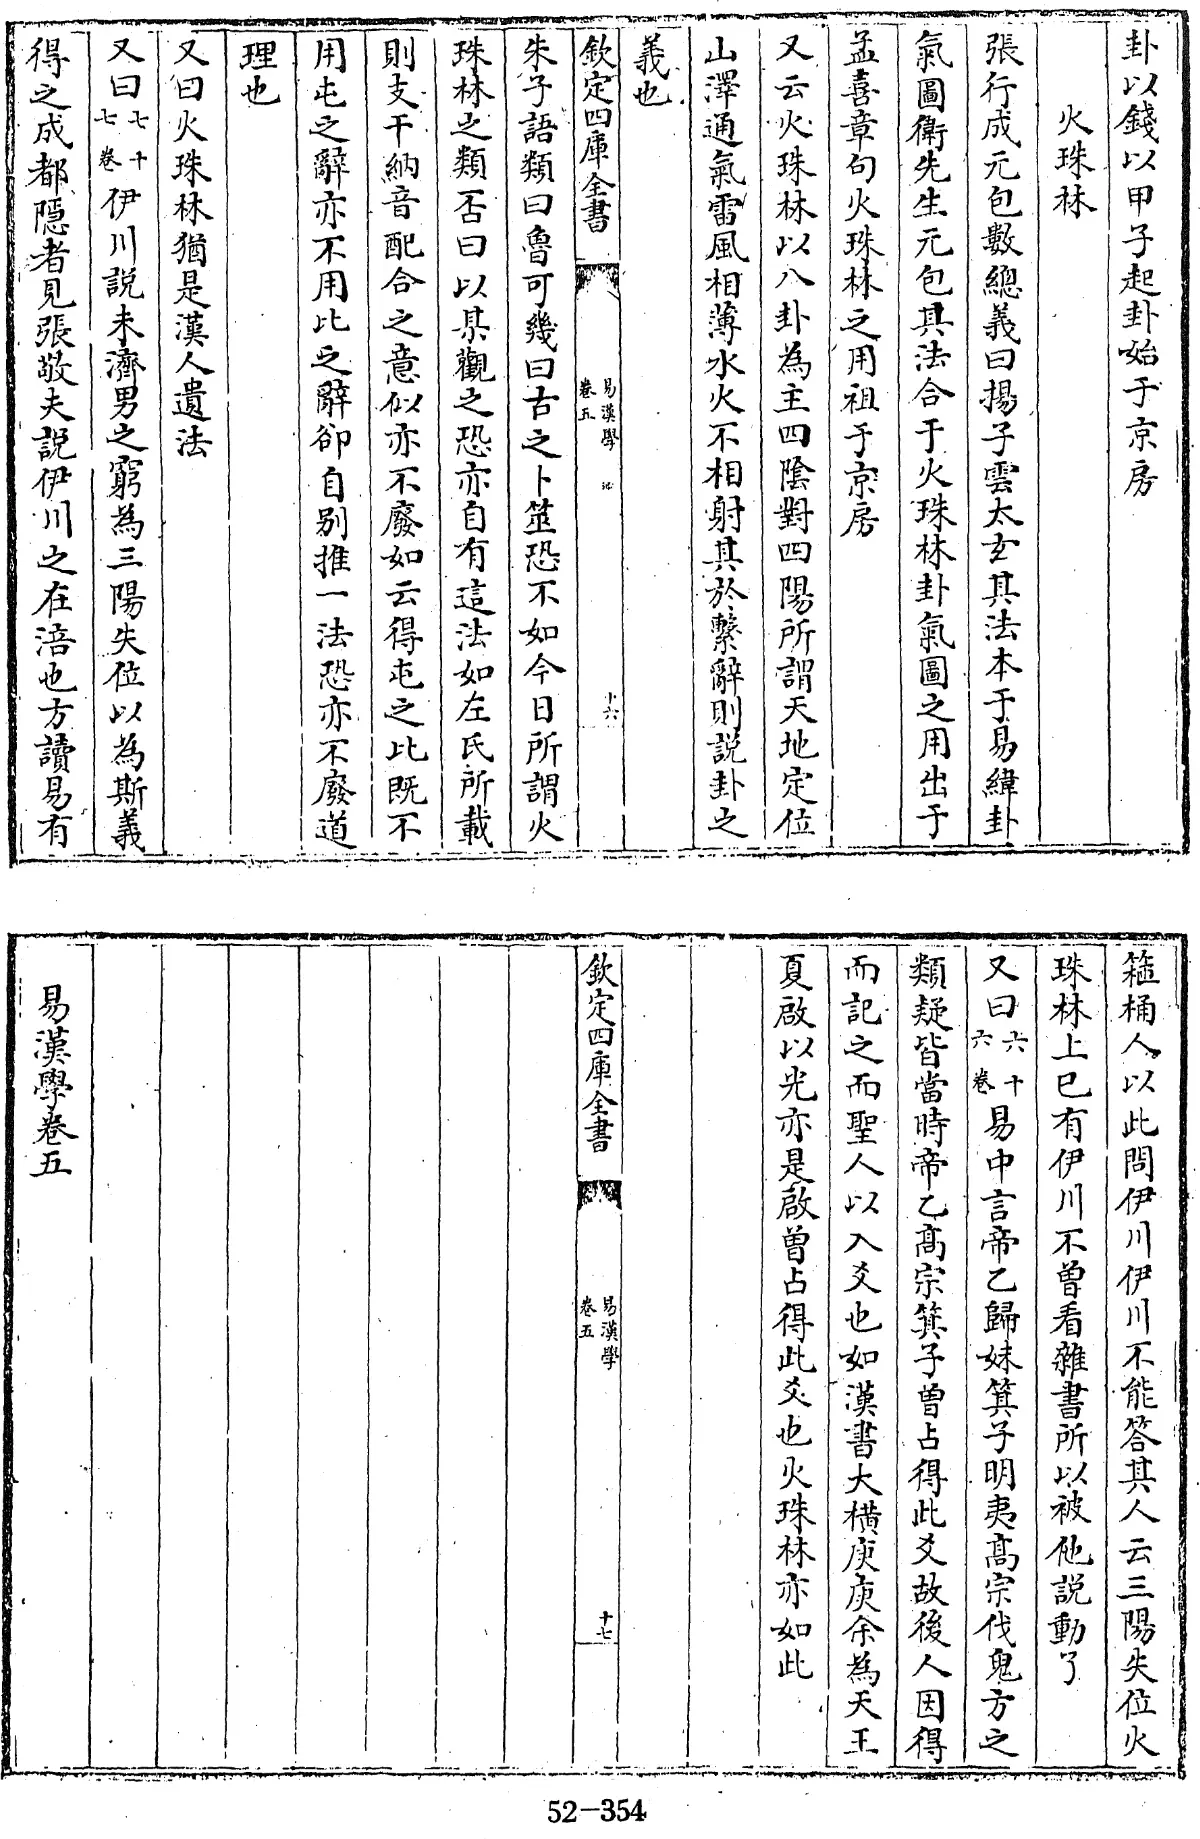 卦以錢以甲子起卦始于京房
火珠林
張行成元包數總義曰揚子雲太玄其法本于易緯卦
氣圖衛先生元包其法合于火珠林卦氣圖之用出于
孟喜章句火珠林之用祖于京房
又云火珠林以八卦為主四陰對四陽所謂天地定位
山澤通氣雷風相薄水火不相射其於繫辭則說卦之
義也
欽定四庫全書
易漢學
卷五
十六
朱子語類曰魯可幾曰古之卜筮恐不如今日所謂火
珠林之類否曰以某觀之恐亦自有這法如左氏所載
則支干納音配合之意似亦不廢如云得屯之比既不
用屯之辭亦不用比之辭卻自別推一法恐亦不廢道
理也
又曰火珠林猶是漢人遺法
又曰七十七卷伊川說未濟男之窮為三陽失位以為斯義
得之成都隱者見張敬夫說伊川之在涪也方讀易有
箍桶人以此問伊川伊川不能答其人云三陽失位火
珠林上已有伊川不曾看雜書所以被他說動了
又曰六十六卷易中言帝乙歸妹箕子明夷高宗伐鬼方之
類疑皆當時帝乙高宗箕子曾占得此爻故後人因得
而記之而聖人以入爻也如漢書大橫庚庚余為天王
夏啟以光亦是啟曾占得此爻也火珠林亦如此
欽定四庫全書
易漢學
卷五
十七
易漢學卷五
52-354